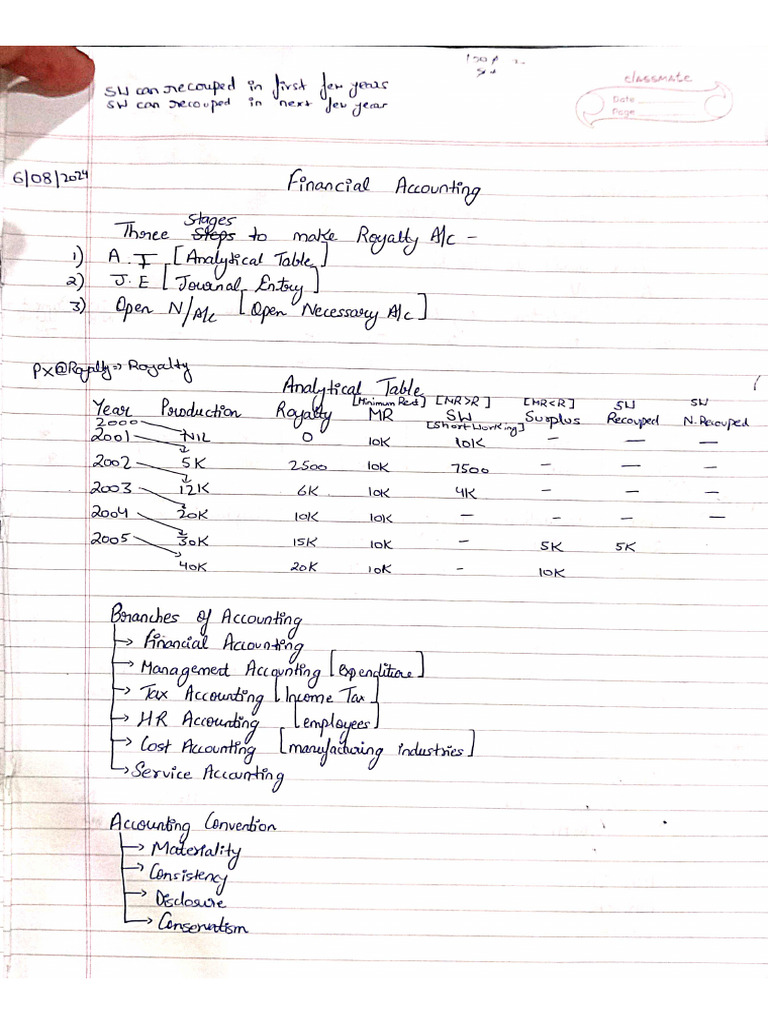 SW can recouped in first few years
SW can recouped in next few year
classmate
Date
Page
6/08/2024
Financial Accounting
Three Stages to make Royalty A/c -
1) A.T [Analytical Table]
2) J.E [Journal Entry]
3) Open N/A/c [Open Necessary A/c]
PX@Royalty => Royalty
Analytical Table
Year Production Royalty [Minimum Rent] MR [MR>R] SW [Short Working] [MR<R] Surplus SW Recouped SW N. Recouped
2000
2001 NIL 0 10K 10K — — —
2002 5K 2500 10K 7500 — — —
2003 12K 6K 10K 4K — — —
2004 20K 10K 10K — — — —
2005 30K 15K 10K — 5K 5K
40K 20K 10K - 10K
Branches of Accounting
→ Financial Accounting
→ Management Accounting [expenditure]
→ Tax Accounting [Income Tax]
→ HR Accounting [employees]
→ Cost Accounting [manufacturing industries]
→ Service Accounting
Accounting Convention
→ Materiality
→ Consistency
→ Disclosure
→ Conservatism